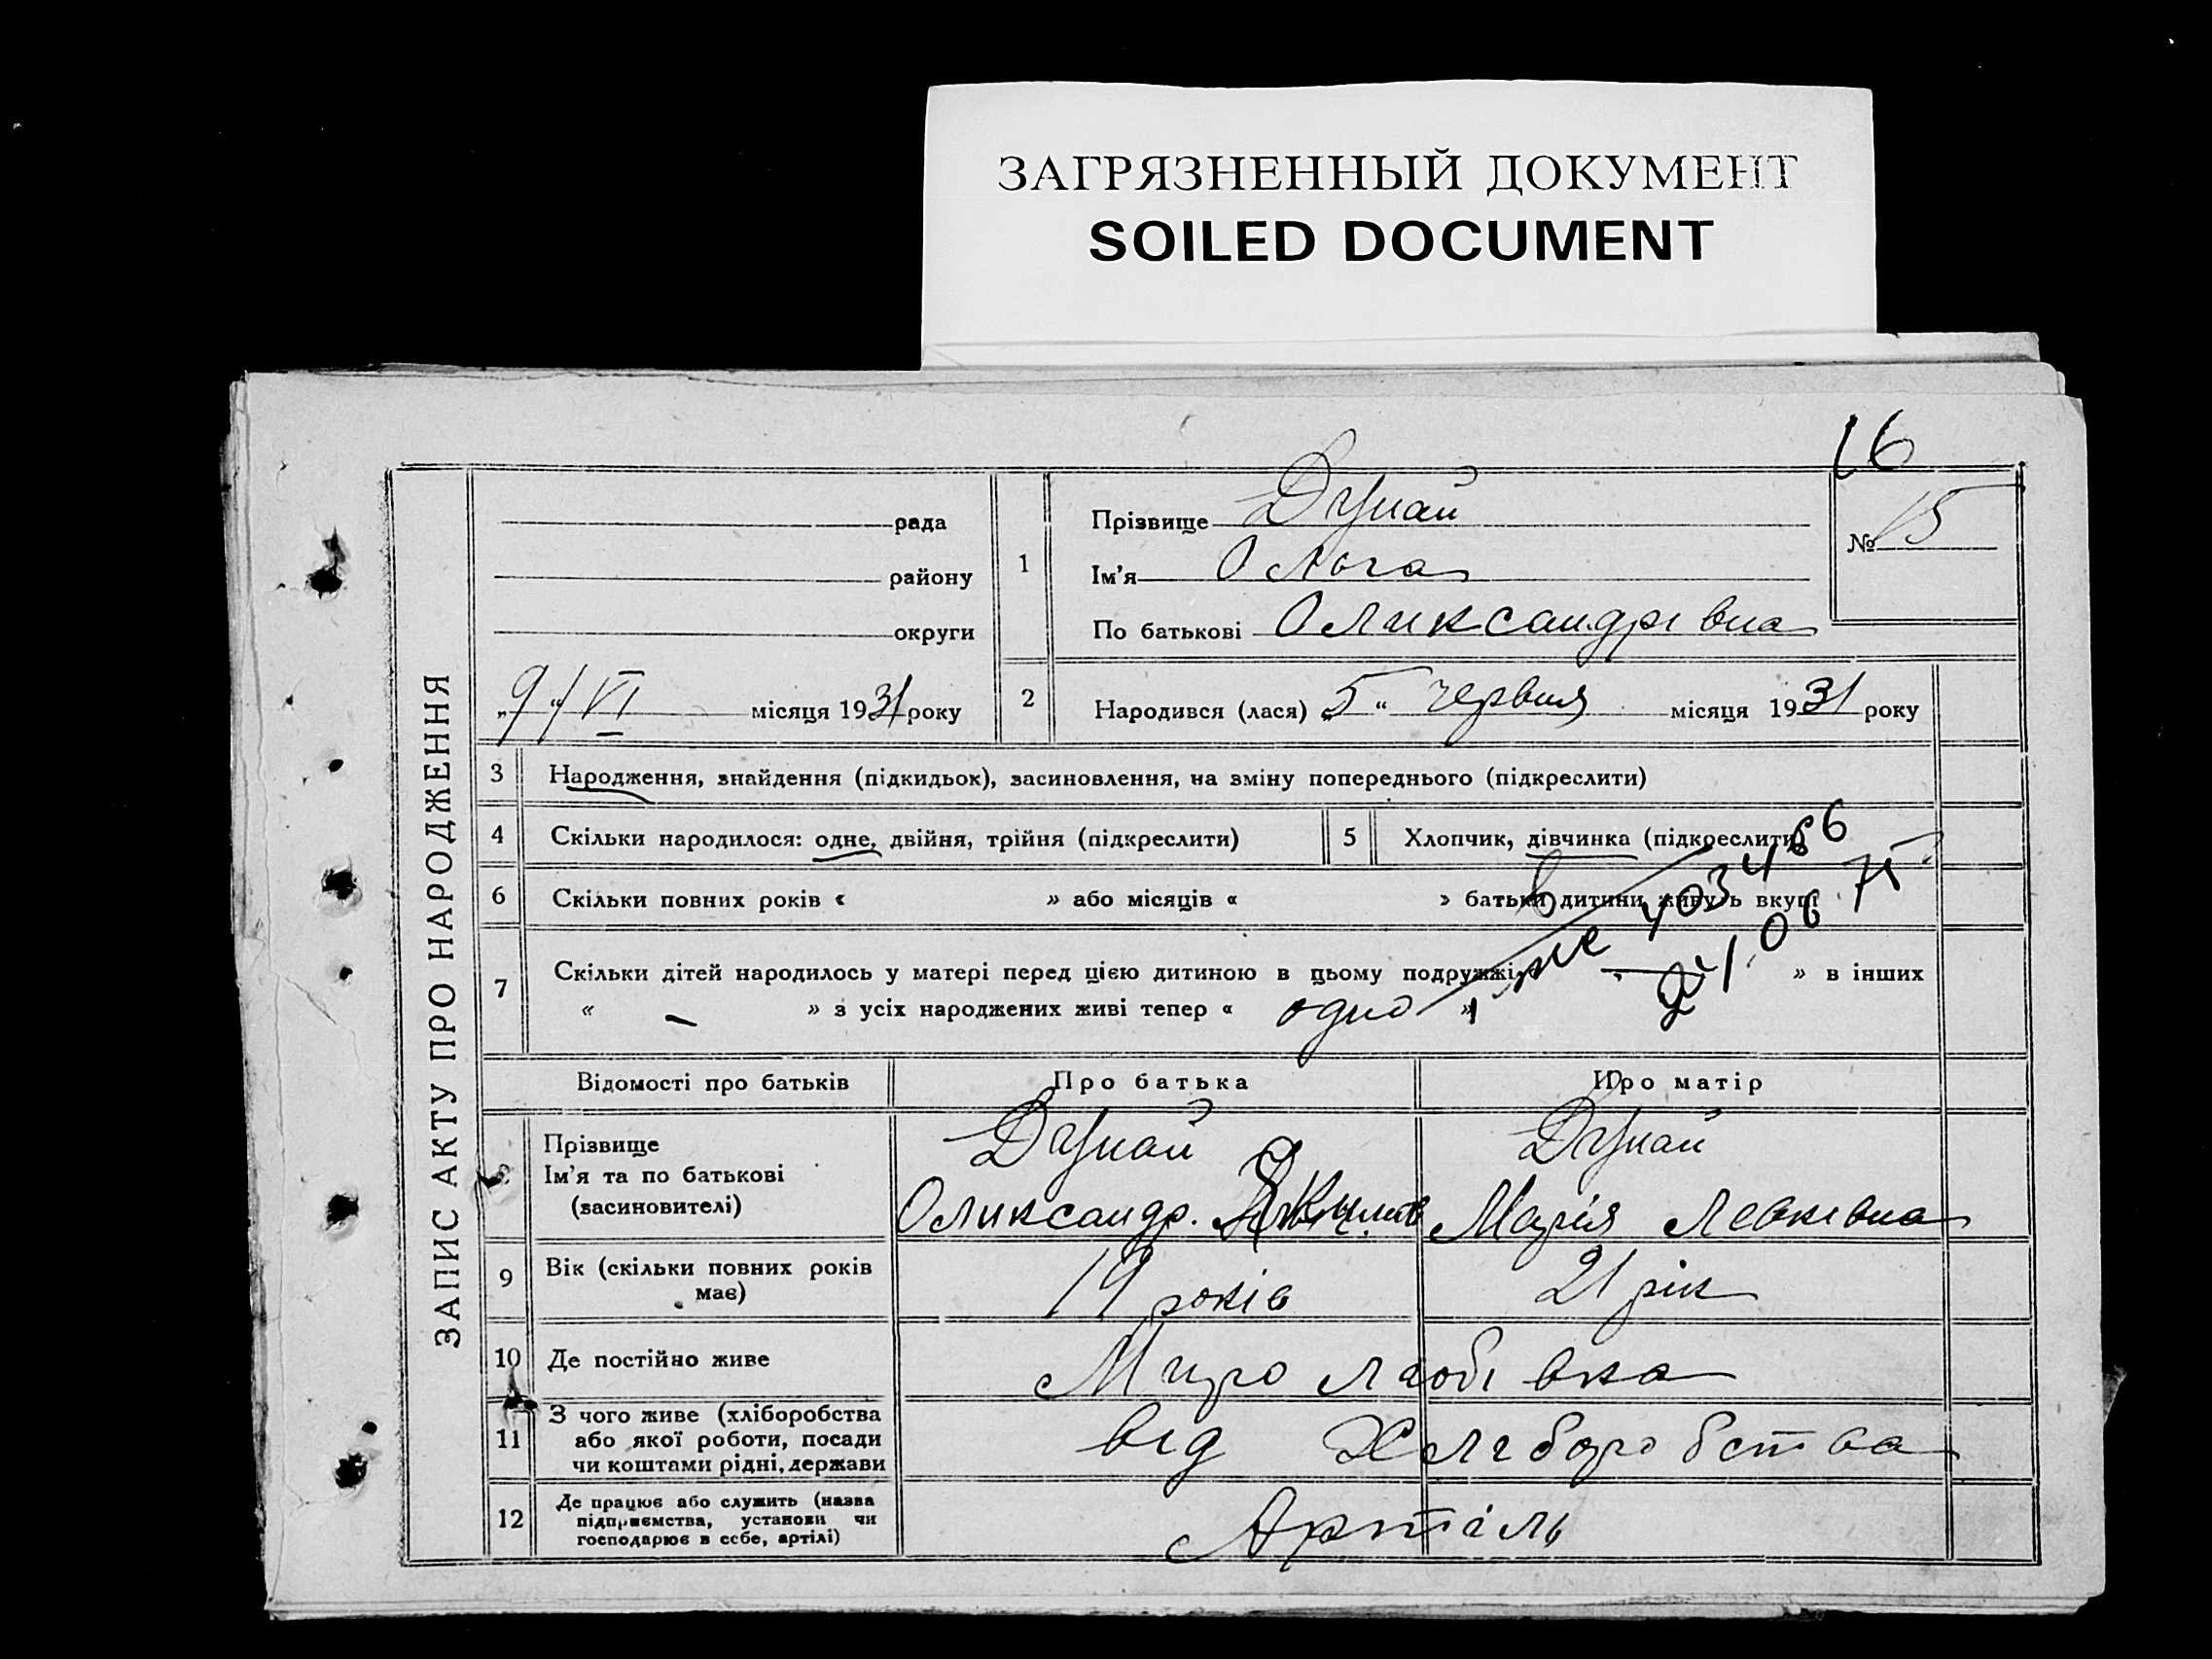 ЗАГРЯЗНЕННЫЙ ДОКУМЕНТ
SOILED DOCUMENT
16
ЗАПИС АКТУ ПРО НАРОДЖЕННЯ
рада
району
округи
„9“ VI місяця 1931 року
1
Прізвище Дунай
Ім’я Ольга
По батькові Олександрівна
№ 15
2 Народився (лася) „5“ червня місяця 1931 року
3 Народження, знайдення (підкидьок), засиновлення, на зміну попереднього (підкреслити)
4 Скільки народилося: одне, двійня, трійня (підкреслити)
5 Хлопчик, дівчинка (підкреслити)
6 Скільки повних років « » або місяців « » батьки дитини живуть вкупі
403466
21.06.75
7 Скільки дітей народилось у матері перед цією дитиною в цьому подружжі « — » в інших
« — » з усіх народжених живі тепер « одно »
Відомості про батьків Про батька Про матір
8 Прізвище
Ім’я та по батькові
(засиновителі)
Дунай
Олександр.
Дунай
Марія Левківна
9 Вік (скільки повних років
має)
19 років
21 рік
10 Де постійно живе
Миролюбівка
11 З чого живе (хліборобства
або якої роботи, посади
чи коштами рідні, держави
від Хліборобства
12 Де працює або служить (назва
підприємства, установи чи
господарює в себе, артілі)
Артіль